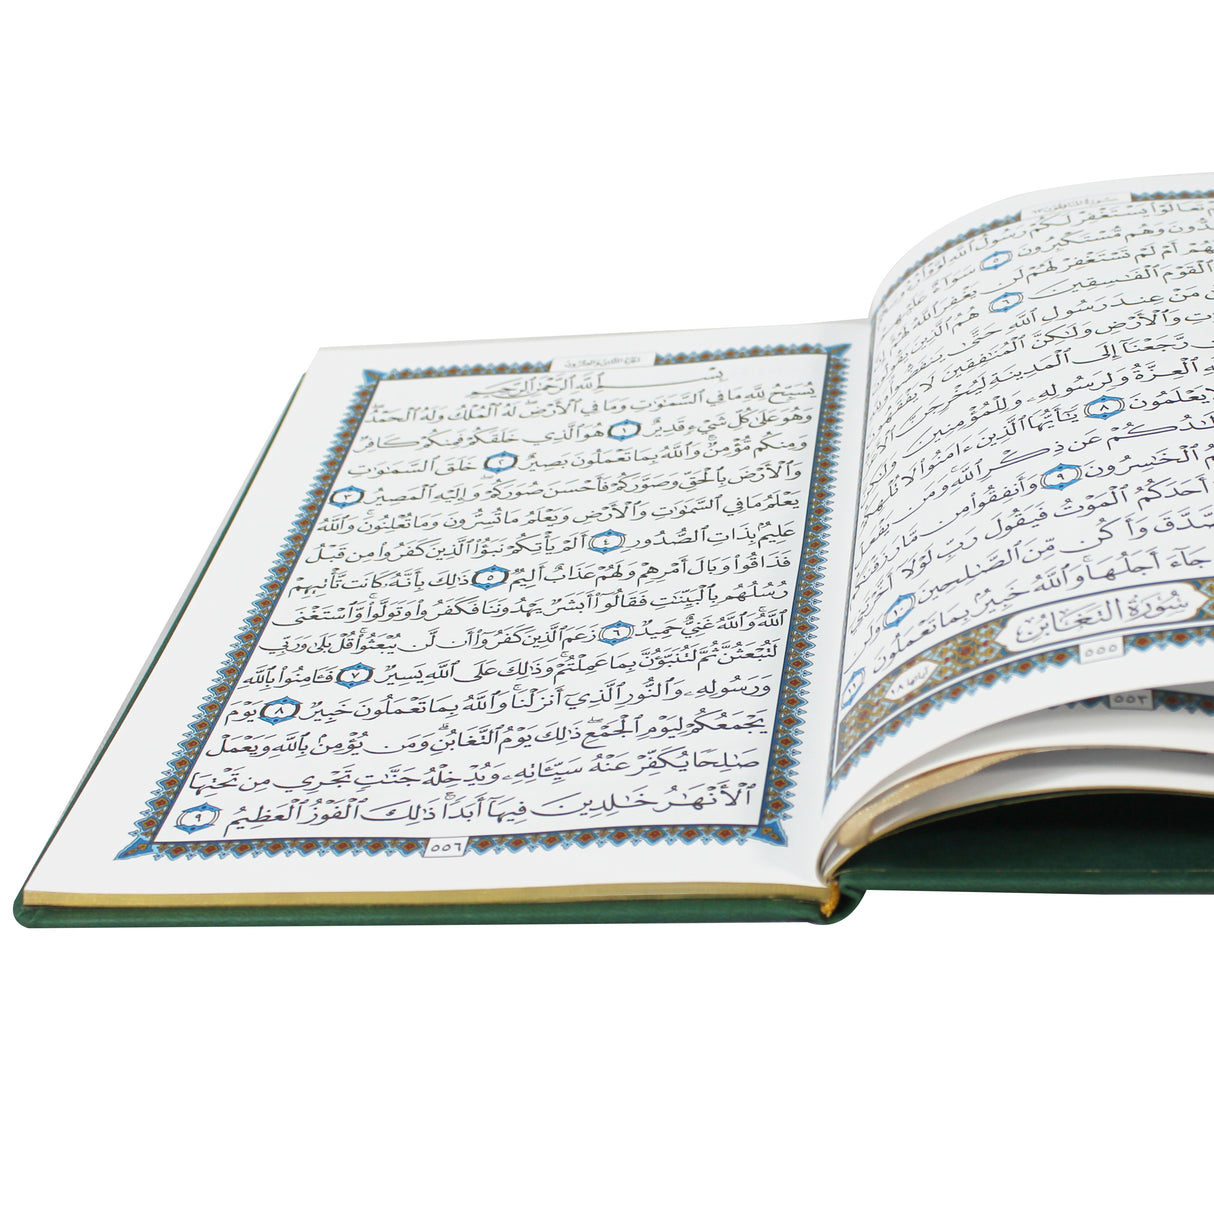 سورة المنافقون ٦٣
تَعَالَوْا۟ يَسْتَغْفِرْ لَكُمْ رَسُولُ ٱللَّهِ لَوَّوْا۟
وَهُم مُّسْتَكْبِرُونَ ٥ سَوَآءٌ عَلَيْهِمْ
أَمْ لَمْ تَسْتَغْفِرْ لَهُمْ لَن يَغْفِرَ ٱللَّهُ لَهُمْ
ٱلْقَوْمَ ٱلْفَـٰسِقِينَ ٦ هُمُ ٱلَّذِينَ يَقُولُونَ
مَنْ عِندَ رَسُولِ ٱللَّهِ حَتَّىٰ يَنفَضُّوا۟
وَٱلْأَرْضِ وَلَـٰكِنَّ ٱلْمُنَـٰفِقِينَ لَا يَفْقَهُونَ
رَّجَعْنَآ إِلَى ٱلْمَدِينَةِ لَيُخْرِجَنَّ
ٱلْعِزَّةُ وَلِرَسُولِهِۦ وَلِلْمُؤْمِنِينَ وَلَـٰكِنَّ
يَعْلَمُونَ ٨ يَـٰٓأَيُّهَا ٱلَّذِينَ ءَامَنُوا۟ لَا تُلْهِكُمْ
عَن ذِكْرِ ٱللَّهِ وَمَن يَفْعَلْ
ٱلْخَـٰسِرُونَ ٩ وَأَنفِقُوا۟ مِن مَّا رَزَقْنَـٰكُم
أَحَدَكُمُ ٱلْمَوْتُ فَيَقُولَ رَبِّ لَوْلَآ أَخَّرْتَنِىٓ
وَأَكُن مِّنَ ٱلصَّـٰلِحِينَ ١٠ وَلَن
جَآءَ أَجَلُهَا وَٱللَّهُ خَبِيرٌۢ بِمَا تَعْمَلُونَ ١١
سُورَةُ التَّغَابُنِ
آياتها ١٨
٥٥٥
٥٥٣
الجزء الثامن والعشرون
بِسْمِ ٱللَّهِ ٱلرَّحْمَـٰنِ ٱلرَّحِيمِ
يُسَبِّحُ لِلَّهِ مَا فِى ٱلسَّمَـٰوَٰتِ وَمَا فِى ٱلْأَرْضِ لَهُ ٱلْمُلْكُ وَلَهُ ٱلْحَمْدُ
وَهُوَ عَلَىٰ كُلِّ شَىْءٍ قَدِيرٌ ١ هُوَ ٱلَّذِى خَلَقَكُمْ فَمِنكُمْ كَافِرٌ
وَمِنكُم مُّؤْمِنٌ وَٱللَّهُ بِمَا تَعْمَلُونَ بَصِيرٌ ٢ خَلَقَ ٱلسَّمَـٰوَٰتِ
وَٱلْأَرْضَ بِٱلْحَقِّ وَصَوَّرَكُمْ فَأَحْسَنَ صُوَرَكُمْ وَإِلَيْهِ ٱلْمَصِيرُ ٣
يَعْلَمُ مَا فِى ٱلسَّمَـٰوَٰتِ وَٱلْأَرْضِ وَيَعْلَمُ مَا تُسِرُّونَ وَمَا تُعْلِنُونَ وَٱللَّهُ
عَلِيمٌۢ بِذَاتِ ٱلصُّدُورِ ٤ أَلَمْ يَأْتِكُمْ نَبَؤُا۟ ٱلَّذِينَ كَفَرُوا۟ مِن قَبْلُ
فَذَاقُوا۟ وَبَالَ أَمْرِهِمْ وَلَهُمْ عَذَابٌ أَلِيمٌ ٥ ذَٰلِكَ بِأَنَّهُۥ كَانَت تَّأْتِيهِمْ
رُسُلُهُم بِٱلْبَيِّنَـٰتِ فَقَالُوٓا۟ أَبَشَرٌ يَهْدُونَنَا فَكَفَرُوا۟ وَتَوَلَّوا۟ وَّٱسْتَغْنَى
ٱللَّهُ وَٱللَّهُ غَنِىٌّ حَمِيدٌ ٦ زَعَمَ ٱلَّذِينَ كَفَرُوٓا۟ أَن لَّن يُبْعَثُوا۟ قُلْ بَلَىٰ وَرَبِّى
لَتُبْعَثُنَّ ثُمَّ لَتُنَبَّؤُنَّ بِمَا عَمِلْتُمْ وَذَٰلِكَ عَلَى ٱللَّهِ يَسِيرٌ ٧ فَـَٔامِنُوا۟ بِٱللَّهِ
وَرَسُولِهِۦ وَٱلنُّورِ ٱلَّذِىٓ أَنزَلْنَا وَٱللَّهُ بِمَا تَعْمَلُونَ خَبِيرٌ ٨ يَوْمَ
يَجْمَعُكُمْ لِيَوْمِ ٱلْجَمْعِ ذَٰلِكَ يَوْمُ ٱلتَّغَابُنِ وَمَن يُؤْمِنۢ بِٱللَّهِ وَيَعْمَلْ
صَـٰلِحًا يُكَفِّرْ عَنْهُ سَيِّـَٔاتِهِۦ وَيُدْخِلْهُ جَنَّـٰتٍ تَجْرِى مِن تَحْتِهَا
ٱلْأَنْهَـٰرُ خَـٰلِدِينَ فِيهَآ أَبَدًا ذَٰلِكَ ٱلْفَوْزُ ٱلْعَظِيمُ ٩
٥٥٦